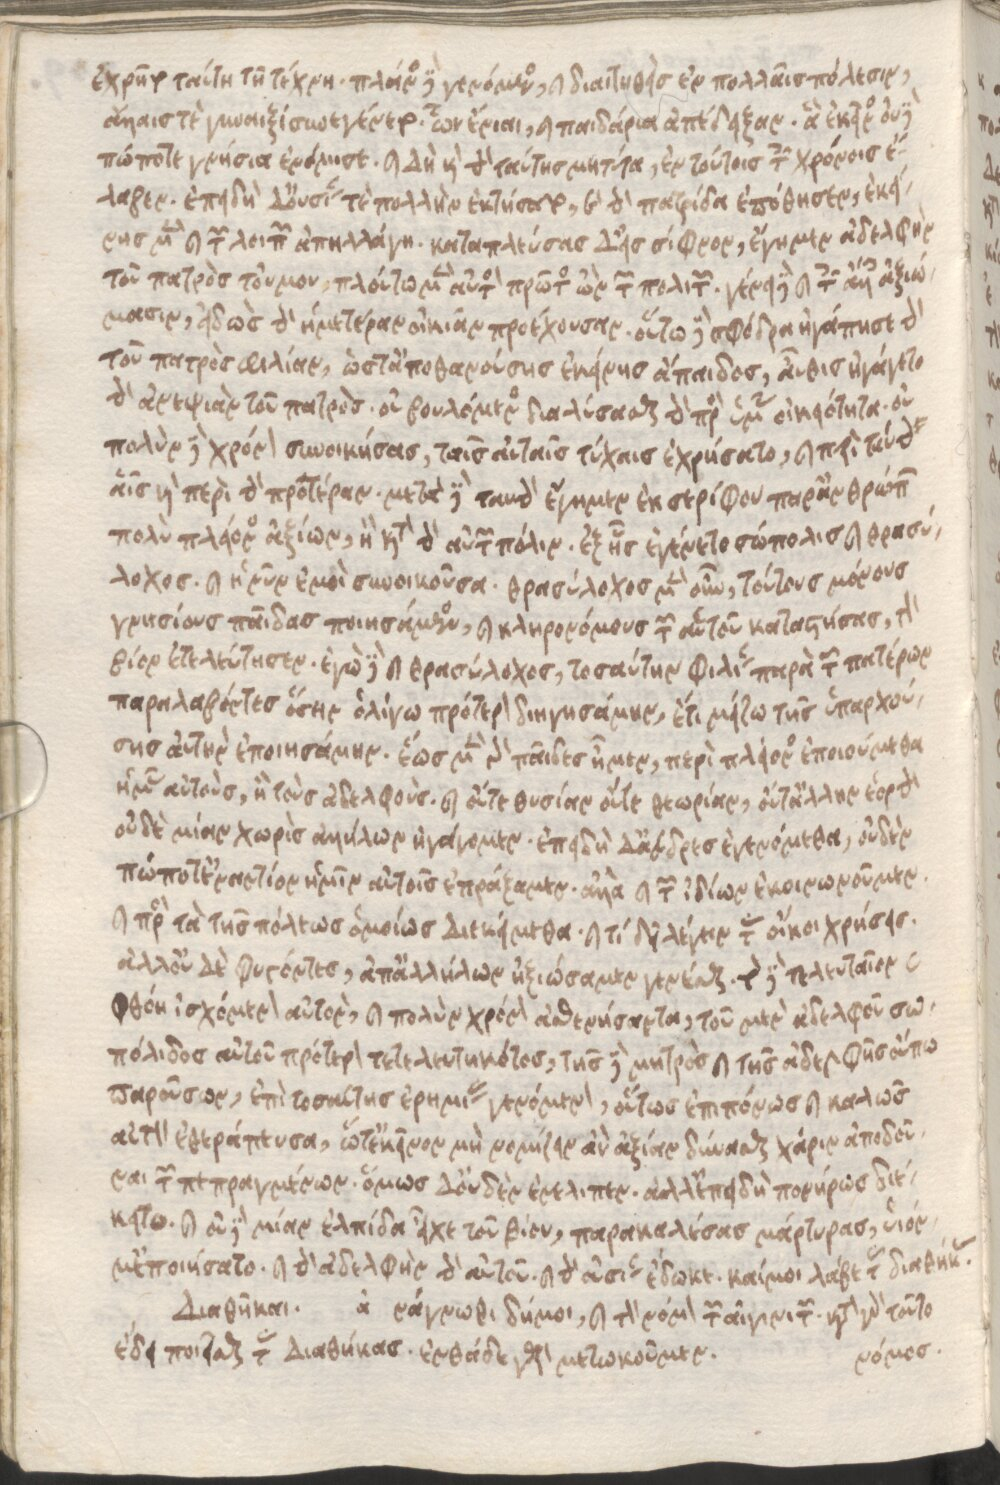 ἐχρῆτο ταύτῃ τῇ τέχνῃ. πλάνος δὲ γενόμενος, καὶ διαιτηθεὶς ἐν πολλαῖς πόλεσιν,
ἄλλαις τὲ γυναιξὶ συνεγένετο. ὧν ἔνιαι, καὶ παιδάρια ἀπέδειξαν. ἃ ἐκεῖνος οὐδὲ
πώποτε γνήσια ἐνόμισε. καὶ δὴ καὶ τὴν ταύτης μητέρα, ἐν τούτοις τοῖς χρόνοις ἔ-
λαβεν. ἐπειδὴ δ' οὐσίαν τὲ πολλὴν ἐκτήσατο, καὶ τὴν πατρίδα ἐπόθησεν, ἐκεί-
νης μὲν καὶ τῶν λοιπῶν ἀπηλλάγη. καταπλεύσας δ' εἰς σίφνον, ἔγημεν ἀδελφὴν
τοῦ πατρὸς τοὐμοῦ, πλούτῳ μὲν αὐτὸς πρῶτος ὢν τῶν πολιτῶν. γένει δὲ καὶ τοῖς ἄλλοις ἀξιώ-
μασιν, εἰδὼς τὴν ἡμετέραν οἰκίαν προέχουσαν. οὕτω δὲ σφόδρα ἠγάπησε τὴν
τοῦ πατρὸς φιλίαν, ὥστ' ἀποθανούσης ἐκείνης ἄπαιδος, αὖθις ἠγάγετο
τὴν ἀνεψιὰν τοῦ πατρὸς. οὐ βουλόμενος διαλύσασθαι τὴν πρὸς ἡμᾶς οἰκειότητα. οὐ
πολὺν δὲ χρόνον συνοικήσας, ταῖς αὐταῖς τύχαις ἐχρήσατο, καὶ περὶ ταύτην
αἷς καὶ περὶ τὴν προτέραν. μετὰ δὲ ταῦτ' ἔγημεν ἐκ σερίφου παρ' ἀνθρώπων
πολὺ πλείονος ἀξίων, ἢ κατὰ τὴν αὐτῶν πόλιν. ἐξ ἧς ἐγένετο σώπολις καὶ θρασύ-
λοχος. καὶ ἡ νῦν ἐμοὶ συνοικοῦσα. θρασύλοχος μὲν οὖν, τούτους μόνους
γνησίους παῖδας ποιησάμενος, καὶ κληρονόμους τῶν αὑτοῦ καταστήσας, τὸν
βίον ἐτελεύτησεν. ἐγὼ δὲ καὶ θρασύλοχος, τοσαύτην φιλίαν παρὰ τῶν πατέρων
παραλαβόντες ὅσην ὀλίγῳ πρότερον διηγησάμην, ἔτι μείζω τῆς ὑπαρχού-
σης αὐτὴν ἐποιησάμην. ἕως μὲν γὰρ παῖδες ἦμεν, περὶ πλείονος ἐποιούμεθα
ἡμᾶς αὐτοὺς, ἢ τοὺς ἀδελφοὺς. καὶ οὔτε θυσίαν οὔτε θεωρίαν, οὔτ' ἄλλην ἑορτὴν
οὐδὲ μίαν χωρὶς ἀλλήλων ἠγάγομεν. ἐπειδὴ δ' ἄνδρες ἐγενόμεθα, οὐδὲν
πώποτ' ἐναντίον ἡμῖν αὐτοῖς ἐπράξαμεν. ἀλλὰ καὶ τῶν ἰδίων ἐκοινωνοῦμεν.
καὶ πρὸς τὰ τῆς πόλεως ὁμοίως διεκείμεθα. καὶ τί δεῖ λέγειν τὰς οἴκοι χρήσεις.
ἀλλ' οὐδὲ φυγόντες, ἀπ' ἀλλήλων ἠξιώσαμεν γενέσθαι. τὸ δὲ τελευταῖον
φθόῃ ἰσχόμενον αὐτὸν, καὶ πολὺν χρόνον ἀσθενήσαντα, τοῦ μὲν ἀδελφοῦ σω-
πόλιδος αὐτοῦ πρότερον τετελευτηκότος, τῆς δὲ μητρὸς καὶ τῆς ἀδελφῆς οὔπω
παρουσῶν, ἐπὶ τοσαύτης ἐρημίας γενόμενον, οὕτως ἐπιπόνως καὶ καλῶς
αὐτὸν ἐθεράπευσα, ὥστ' ἐκεῖνον μὴ νομίζειν ἂν ἀξίαν δύνασθαι χάριν ἀποδοῦ-
ναι τῶν πεπραγμένων. ὅμως δ' οὐδὲν ἐνέλιπεν. ἀλλ' ἐπειδὴ πονήρως διέ-
κειτο. καὶ οὐδὲ μίαν ἐλπίδα εἶχε τοῦ βίου, παρακαλέσας μάρτυρας, ὑιόν
μ' ἐποιήσατο. καὶ τὴν ἀδελφὴν τὴν αὑτοῦ. καὶ τὴν οὐσίαν ἔδωκε. καί μοι λάβε τὰς διαθήκας.
Διαθῆκαι. ἀνάγνωθι δή μοι, καὶ τὸν νόμον τῶν αἰγινητῶν. κατὰ γὰρ τοῦτον
ἔδει ποιεῖσθαι τὰς διαθήκας. ἐνθάδε γὰρ μετῳκοῦμεν. νόμος.